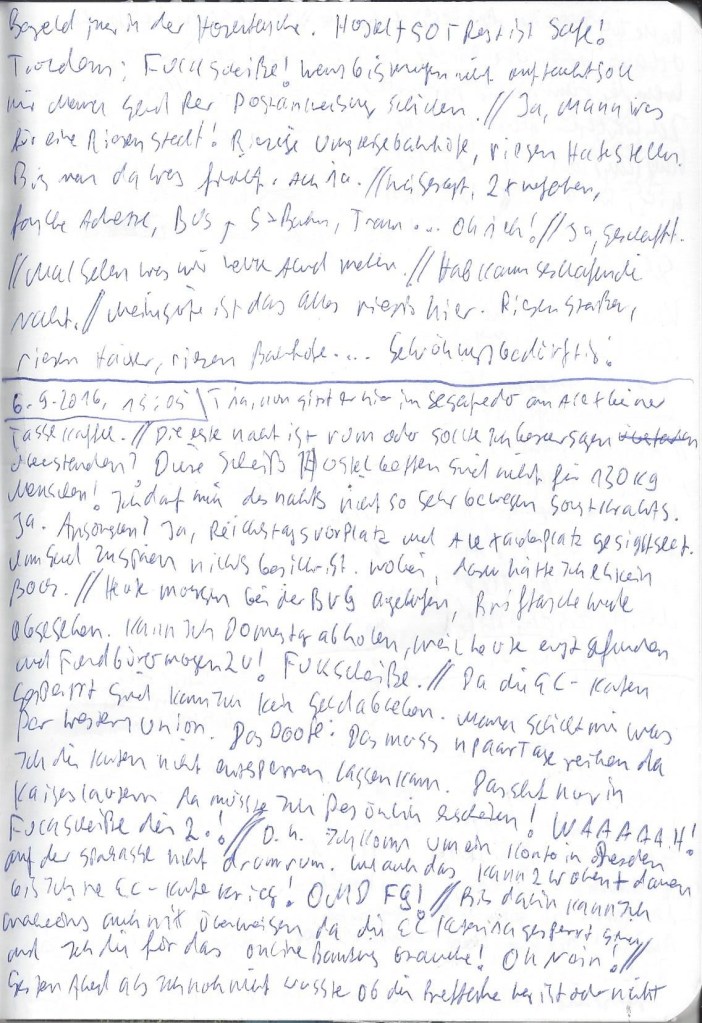 Bargeld immer in der Hosentasche. Hostel + SO Rest ist Safe!
Trotzdem: Fuckscheiße! Wenns bis morgen nicht auftaucht soll
mir Mama Geld Per Postanweisung schicken. // Ja, Mann was
für eine Riesenstadt! Riesige Umsteigebahnhöfe, riesen Haltestellen.
Bis man da was findet. // Wie gesagt, 2x verfahren,
falsche Adresse, Bus, S-Bahn, Tram... Oh ich! // Ja, geschafft.
// Mal sehen was wir heute Abend machen. // Hab kaum geschlafen die
Nacht. // Meine Güte ist das alles riesig hier. Riesen Straßen,
riesen Häuser, riesen Bahnhöfe.... Gewöhnungsbedürftig!
6.9.2016, 13:05 Tja, nun sitzt er hier im Segafredo am Alex bei ner
Tasse Kaffee. // Die erste Nacht ist rum oder sollte ich besser sagen
überstanden? Diese Scheiß Hostelbetten sind nicht für 130 KG
Menschen! Ich darf mich des nachts nicht so sehr bewegen sonst krachts.
Ja. Ansonsten? Ja, Reichstagsvorplatz und Alexanderplatz gesightseet.
nichts besichtigt. Wobei, dazu hätte ich eh kein
Bock. // Heute morgen bei der BVG angerufen, Brieftasche wurde
abgegeben. Kann ich Donnerstag abholen, weil heute erst gefunden
und Fundbüro morgen zu! Fuckscheiße. // Da die EC-Karten
gesperrt sind kann ich kein Geld abheben. Mama schickt mir was
Per Western Union. Das Doofe: Das muss n paar Tage reichen da
ich die Karten nicht entsperren lassen kann. Das geht nur in
Kaiserslautern. Da müsste ich Persönlich erscheinen! WAAAAAH!
Fuckscheiße die 2.! // D.h. ich komm um ein Konto in Dresden
auf der Sparkasse nicht drumrum. Und auch das kann 2 Wochen dauern
bis ich ne EC-Karte krieg! OMD FG! // Bis dahin kann ich
auch nix überweisen da die EC Karten gesperrt sind
und ich die für das online Banking brauche! Oh Nein! //
Gestern Abend als ich noch nicht wusste ob die Brieftasche weg ist oder nicht